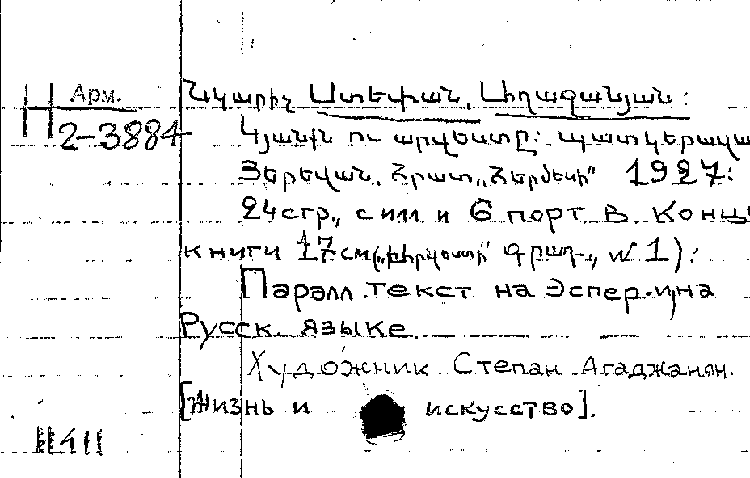 Арм.
Н 2-3884
Նկարիչ Ստեփան Աղաջանյան:
Կյանքն ու արվեստը: պատկերազա
Յերեվան, Հրատ.
1927:
24 стр., с илл и 6 порт в. конц
книги 17 см № 1):
Паралл. текст на Эспер. и на
Русск. языке.
Художник Степан Агаджанян.
[Жизнь и искусство].